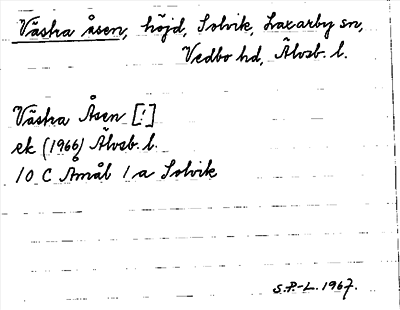 Västra åsen, höjd, Solvik, Laxarby sn,
Vedbo hd, Älvsb. l.
Västra Åsen [!]
ek (1966) Älvsb. l.
10 C Åmål 1 a Solvik
S.P.-L. 1967.